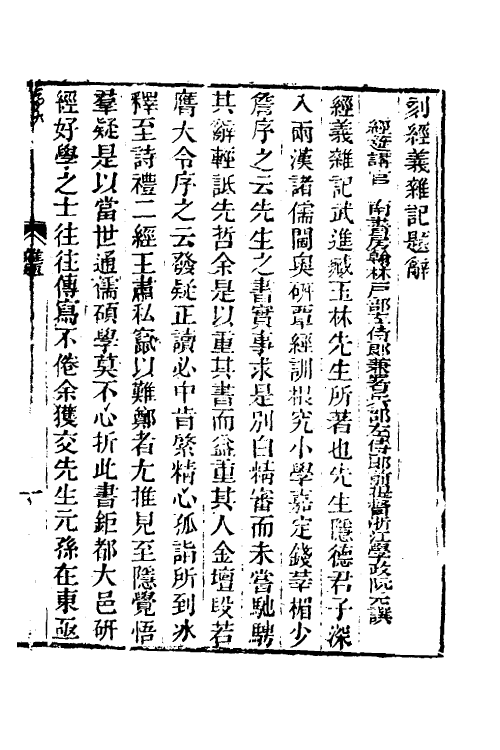 刻經義雜記題辭
經筵講官南書房翰林戶部左侍郎兼署兵部左侍郎前提督浙江學政阮元譔
經義雜記武進臧玉林先生所著也先生隱德君子深
入兩漢諸儒閫奧硏覃經訓根究小學嘉定錢莘楣少
詹序之云先生之書實事求是別白精審而未嘗馳騁
其辭輕詆先哲余是以重其書而益重其人金壇段若
膺大令序之云發疑正讀必中肯綮精心孤詣所到冰
釋至詩禮二經王肅私竄以難鄭者尤推見至隱覺悟
羣疑是以當世通儒碩學莫不心折此書鉅都大邑硏
經好學之士往往傳寫不倦余獲交先生元孫在東亟